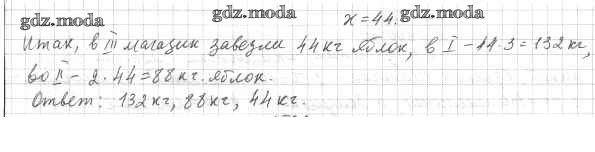 gdz.moda gdz.moda x=44. gdz.moda
Итак, в III магазин завезли 44 кг яблок, в I – 44·3=132 кг,
во II – 2·44=88 кг. яблок.
Ответ: 132 кг, 88 кг, 44 кг.